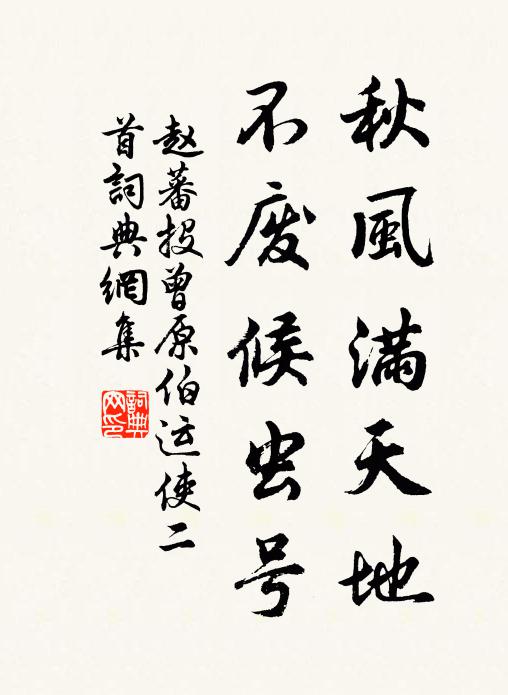 秋風满天地
不废候虫号
赵蕃投曾原伯运使二
首詞典網集
詞典
网印